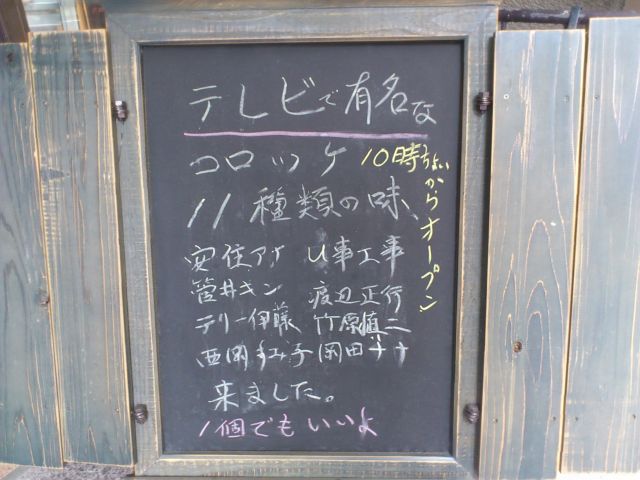 テレビで有名な
コロッケ
10時ちょいからオープン
11種類の味
安住アナ U字工事
筒井キン 渡辺正行
テリー伊藤 竹原慎二
西岡すみ子 岡田ナナ
来ました。
1個でもいいよ